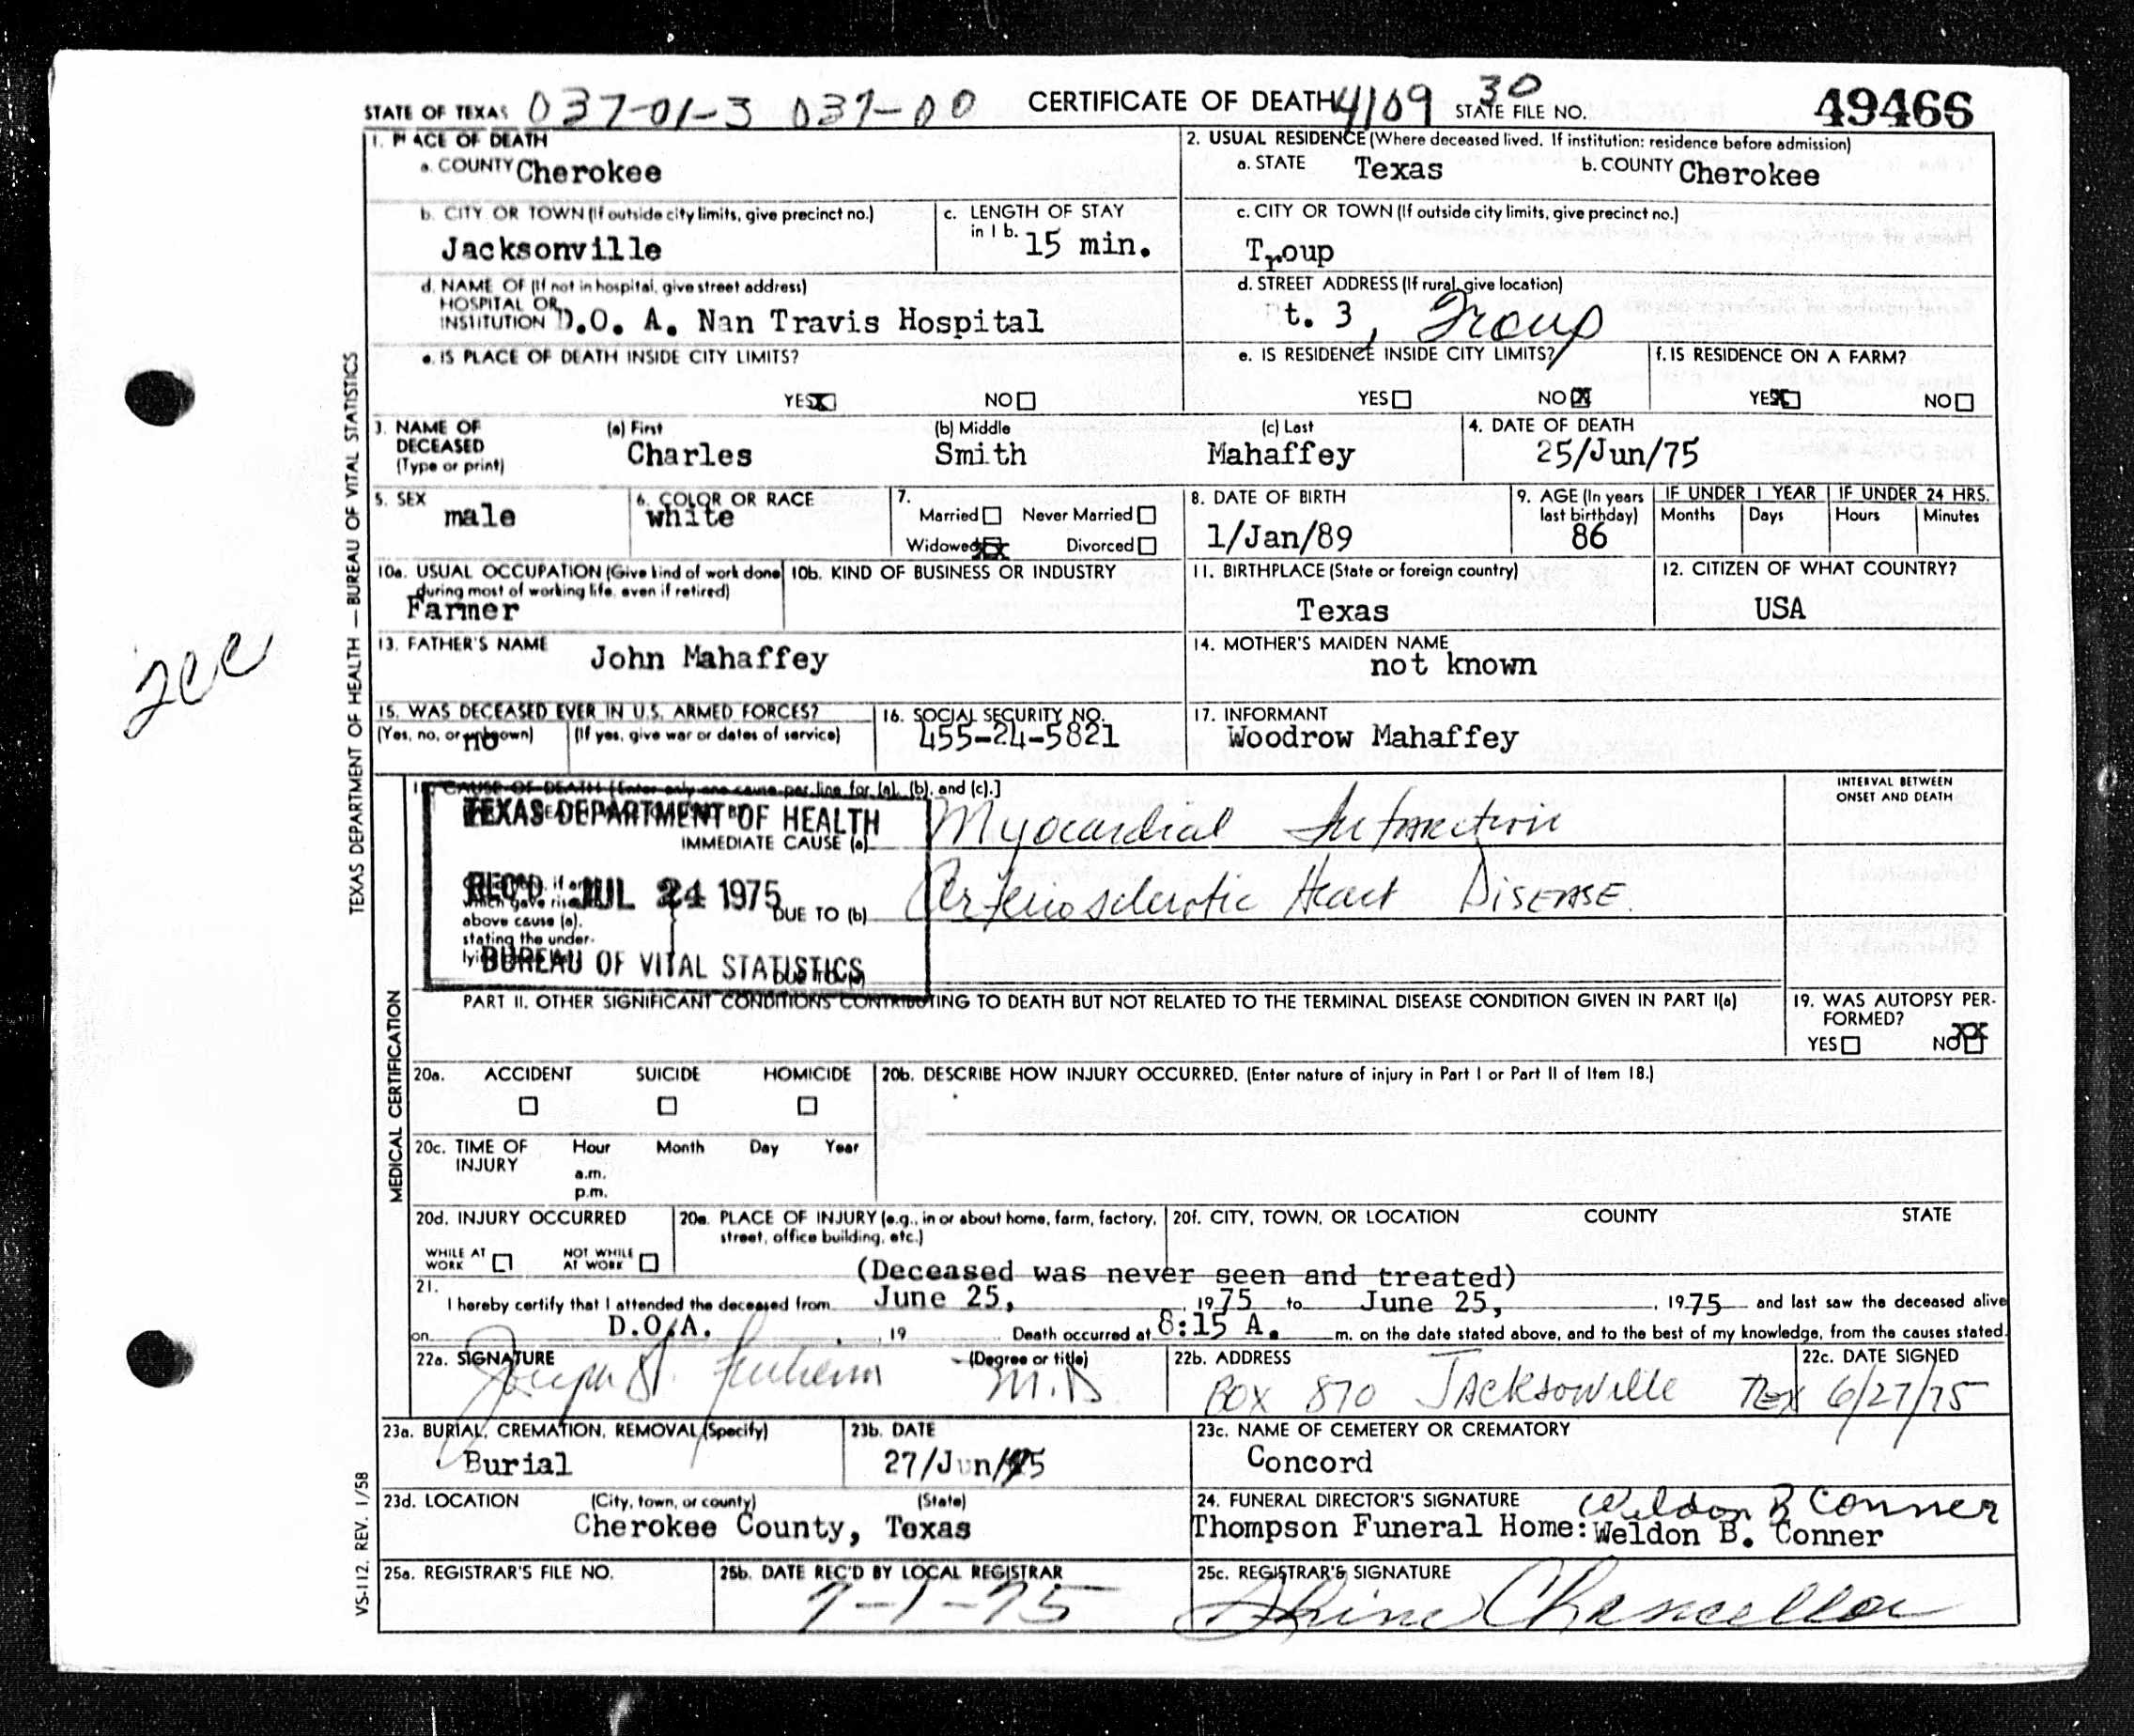 STATE OF TEXAS 037-01-3 037-00 CERTIFICATE OF DEATH 4109 30 STATE FILE NO. 49466
1. PLACE OF DEATH
a. COUNTY Cherokee
b. CITY OR TOWN (If outside city limits, give precinct no.)
Jacksonville
c. LENGTH OF STAY in 1 b. 15 min.
d. NAME OF (If not in hospital, give street address)
HOSPITAL OR
INSTITUTION D.O. A. Nan Travis Hospital
e. IS PLACE OF DEATH INSIDE CITY LIMITS?
YES NO
2. USUAL RESIDENCE (Where deceased lived. If institution: residence before admission)
a. STATE Texas b. COUNTY Cherokee
c. CITY OR TOWN (If outside city limits, give precinct no.)
Troup
d. STREET ADDRESS (If rural, give location)
t. 3, Troup
e. IS RESIDENCE INSIDE CITY LIMITS?
YES NO
f. IS RESIDENCE ON A FARM?
YES NO
3. NAME OF DECEASED (Type or print)
(a) First Charles
(b) Middle Smith
(c) Last Mahaffey
4. DATE OF DEATH
25/Jun/75
5. SEX
male
6. COLOR OR RACE
white
7.
Married Never Married
Widowed Divorced
8. DATE OF BIRTH
1/Jan/89
9. AGE (In years last birthday)
86
IF UNDER 1 YEAR
Months Days
IF UNDER 24 HRS.
Hours Minutes
10a. USUAL OCCUPATION (Give kind of work done during most of working life, even if retired)
Farmer
10b. KIND OF BUSINESS OR INDUSTRY
11. BIRTHPLACE (State or foreign country)
Texas
12. CITIZEN OF WHAT COUNTRY?
USA
13. FATHER'S NAME
John Mahaffey
14. MOTHER'S MAIDEN NAME
not known
15. WAS DECEASED EVER IN U.S. ARMED FORCES?
(Yes, no, or unknown) (If yes, give war or dates of service)
no
16. SOCIAL SECURITY NO.
455-24-5821
17. INFORMANT
Woodrow Mahaffey
18. CAUSE OF DEATH [Enter only one cause per line for (a), (b), and (c).]
INTERVAL BETWEEN
ONSET AND DEATH
TEXAS DEPARTMENT OF HEALTH
IMMEDIATE CAUSE (a) Myocardial Infarction
REC'D JUL 24 1975
which gave rise
above cause (a),
stating the under-
DUE TO (b) Arteriosclerotic Heart DISEASE.
BUREAU OF VITAL STATISTICS
PART II. OTHER SIGNIFICANT CONDITIONS CONTRIBUTING TO DEATH BUT NOT RELATED TO THE TERMINAL DISEASE CONDITION GIVEN IN PART I(a)
19. WAS AUTOPSY PERFORMED?
YES NO
20a. ACCIDENT SUICIDE HOMICIDE
20b. DESCRIBE HOW INJURY OCCURRED. (Enter nature of injury in Part I or Part II of Item 18.)
20c. TIME OF INJURY
Hour Month Day Year
a.m.
p.m.
20d. INJURY OCCURRED
WHILE AT WORK NOT WHILE AT WORK
20e. PLACE OF INJURY (e.g., in or about home, farm, factory, street, office building, etc.)
20f. CITY, TOWN, OR LOCATION COUNTY STATE
(Deceased was never seen and treated)
21. I hereby certify that I attended the deceased from June 25, 1975 to June 25, 1975 and last saw the deceased alive
on D.O.A. , 19 Death occurred at 8:15 A. m. on the date stated above, and to the best of my knowledge, from the causes stated.
22a. SIGNATURE (Degree or title)
M.D
22b. ADDRESS
BOX 870 JACKSONVILLE TEX
22c. DATE SIGNED
6/27/75
23a. BURIAL, CREMATION, REMOVAL (Specify)
Burial
23b. DATE
27/Jun/75
23c. NAME OF CEMETERY OR CREMATORY
Concord
23d. LOCATION (City, town, or county) (State)
Cherokee County, Texas
24. FUNERAL DIRECTOR'S SIGNATURE Weldon B Conner
Thompson Funeral Home: Weldon B. Conner
25a. REGISTRAR'S FILE NO.
25b. DATE REC'D BY LOCAL REGISTRAR
7-1-75
25c. REGISTRAR'S SIGNATURE
Chancellor
TEXAS DEPARTMENT OF HEALTH — BUREAU OF VITAL STATISTICS
MEDICAL CERTIFICATION
VS-112. REV. 1/58